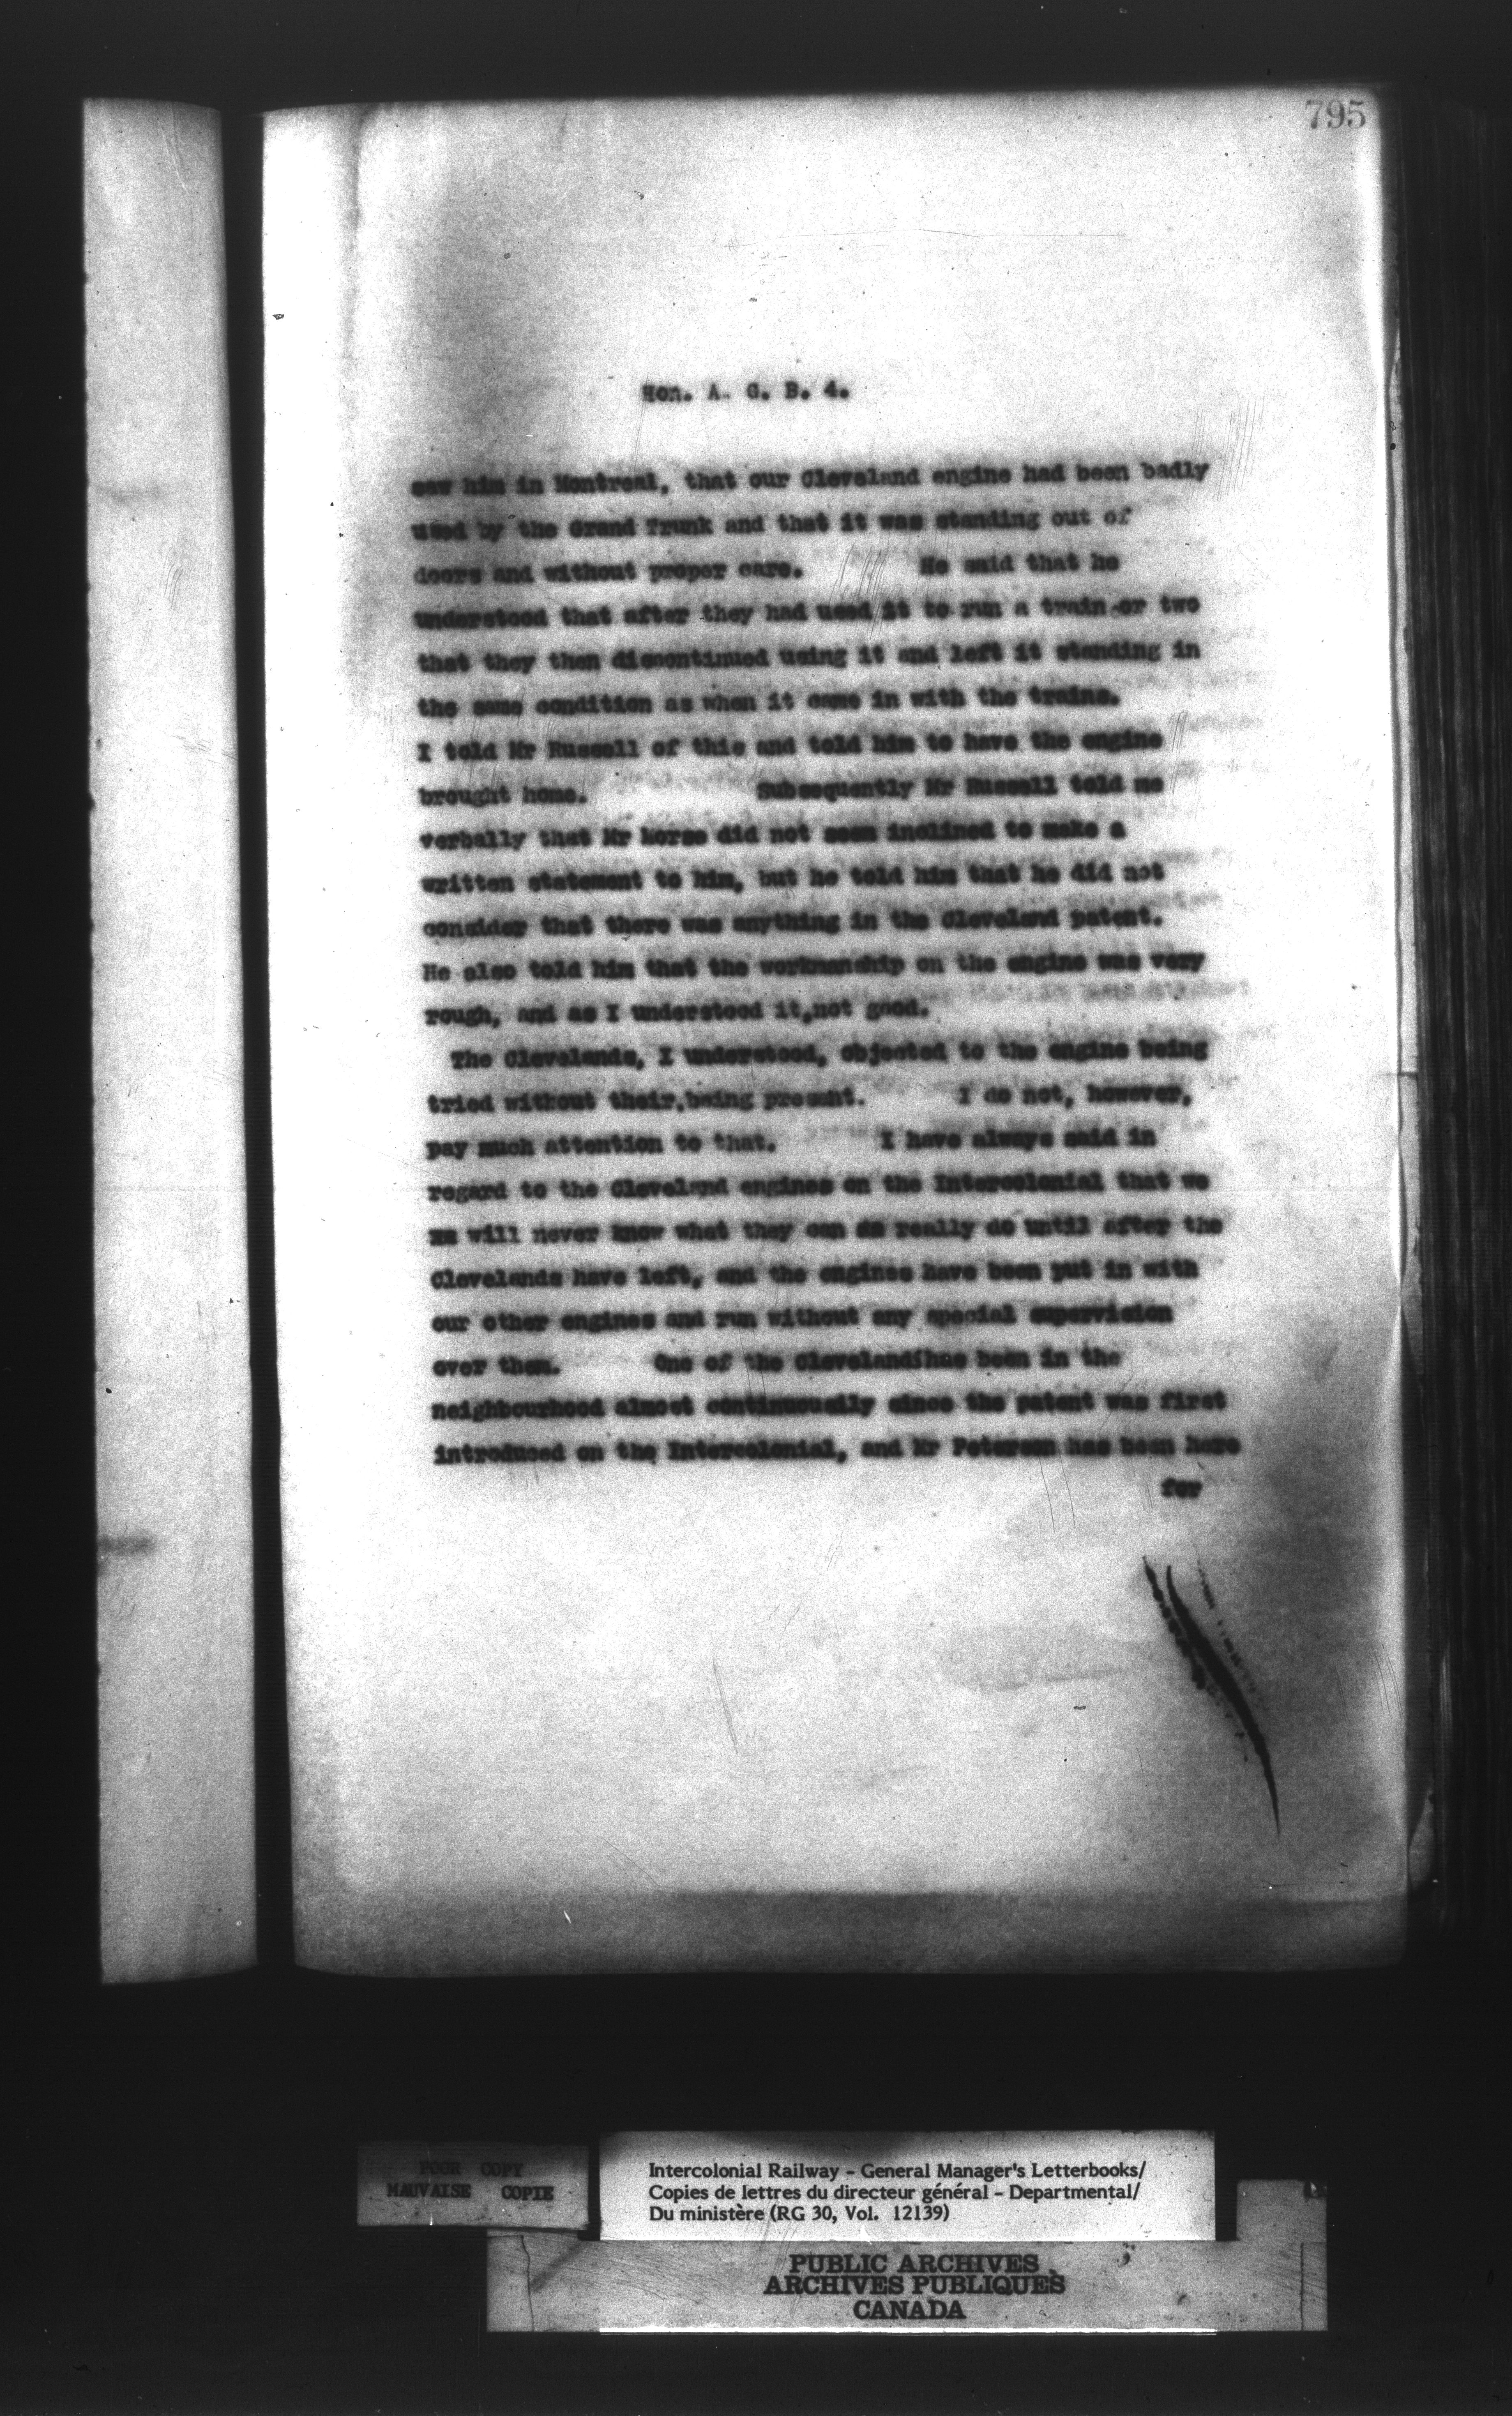 795
Hon. A. G. B. 4.
saw him in Montreal, that our Cleveland engine had been badly
used by the Grand Trunk and that it was standing out of
doors and without proper care. He said that he
understood that after they had used it to run a train or two
that they then discontinued using it and left it standing in
the same condition as when it came in with the trains.
I told Mr Russell of this and told him to have the engine
brought home. Subsequently Mr Russell told me
verbally that Mr Morse did not seem inclined to make a
written statement to him, but he told him that he did not
consider that there was anything in the Cleveland patent.
He also told him that the workmanship on the engine was very
rough, and as I understood it,not good.
The Clevelands, I understood, objected to the engine being
tried without their being present. I do not, however,
pay much attention to that. I have always said in
regard to the Cleveland engines on the Intercolonial that we
will never know what they can really do until after the
Clevelands have left, and the engines have been put in with
our other engines and run without any special supervision
over them. One of the Clevelands has been in the
neighbourhood almost continuously since the patent was first
introduced on the Intercolonial, and Mr Peterson has been here
for
POOR COPY
MAUVAISE COPIE
Intercolonial Railway - General Manager's Letterbooks/
Copies de lettres du directeur général - Departmental/
Du ministère (RG 30, Vol. 12139)
PUBLIC ARCHIVES
ARCHIVES PUBLIQUES
CANADA